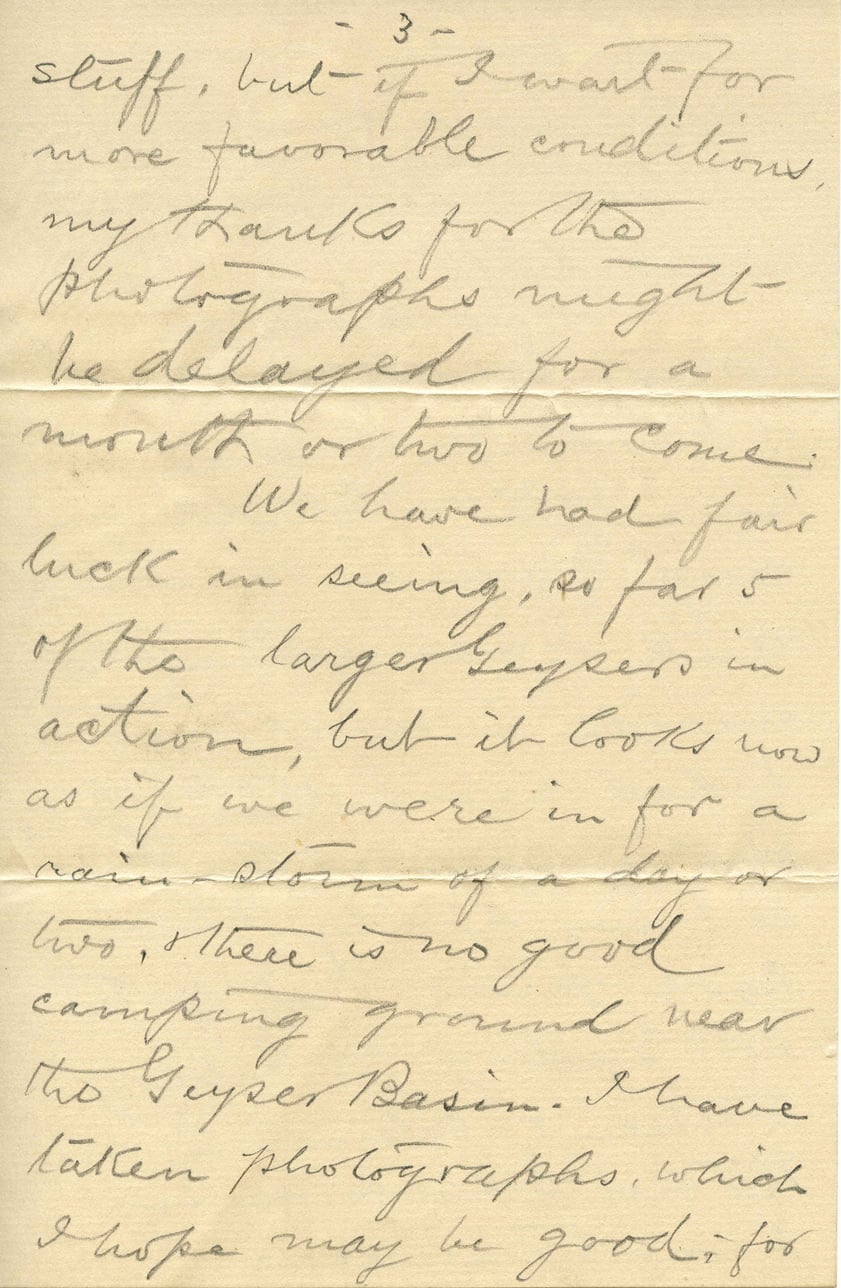 - 3 -
stuff, but if I wait for
more favorable conditions,
my thanks for the
photographs might
be delayed for a
month or two to come.
We have had fair
luck in seeing, so far 5
of the larger Geysers in
action, but it looks now
as if we were in for a
rain-storm of a day or
two, & there is no good
camping ground near
the Geyser Basin. I have
taken photographs, which
I hope may be good; for